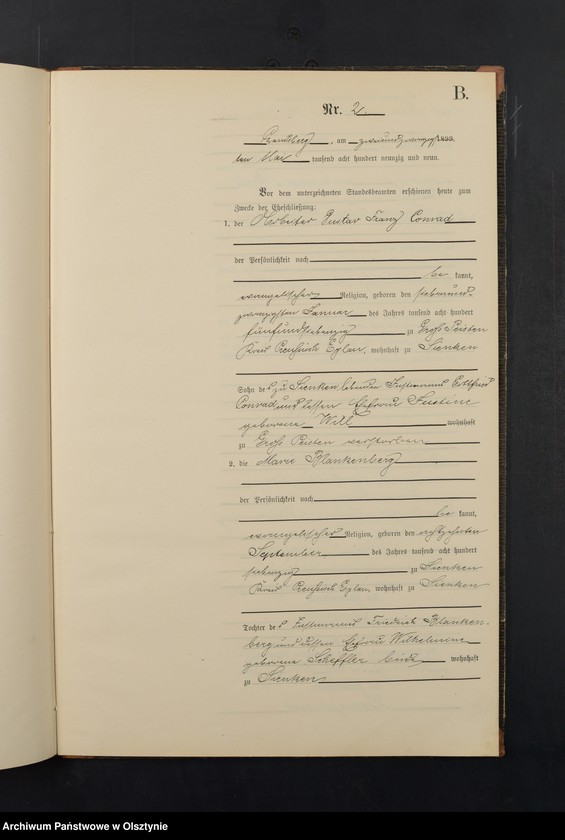 B.
Nr. 2.
, am zweiundzwanzig 1899.
ten Mai tausend acht hundert neunzig und neun.
Vor dem unterzeichneten Standesbeamten erschienen heute zum
Zwecke der Eheschließung:
1. der Arbeiter Gustav Franz Conrad
der Persönlichkeit nach
be kannt,
evangelischer Religion, geboren den siebenund-
zwanzigsten Januar des Jahres tausend acht hundert
fünfundsiebenzig zu Groß Peisten
Kreis Preußisch Eylau, wohnhaft zu Sienken
Sohn des zu Sienken lebenden Instmanns Gottfried
Conrad und dessen Ehefrau Justine
geborene Will wohnhaft
zu Groß Peisten verstorben
2. die Marie Blankenberg
der Persönlichkeit nach
be kannt,
evangelischer Religion, geboren den achtzehnten
September des Jahres tausend acht hundert
siebenzig zu Sienken
Kreis Preußisch Eylau, wohnhaft zu Sienken
Tochter des Instmanns Friedrich Blanken-
berg und dessen Ehefrau Wilhelmine
geborene Scheffler beide wohnhaft
zu Sienken
Archiwum Państwowe w Olsztynie